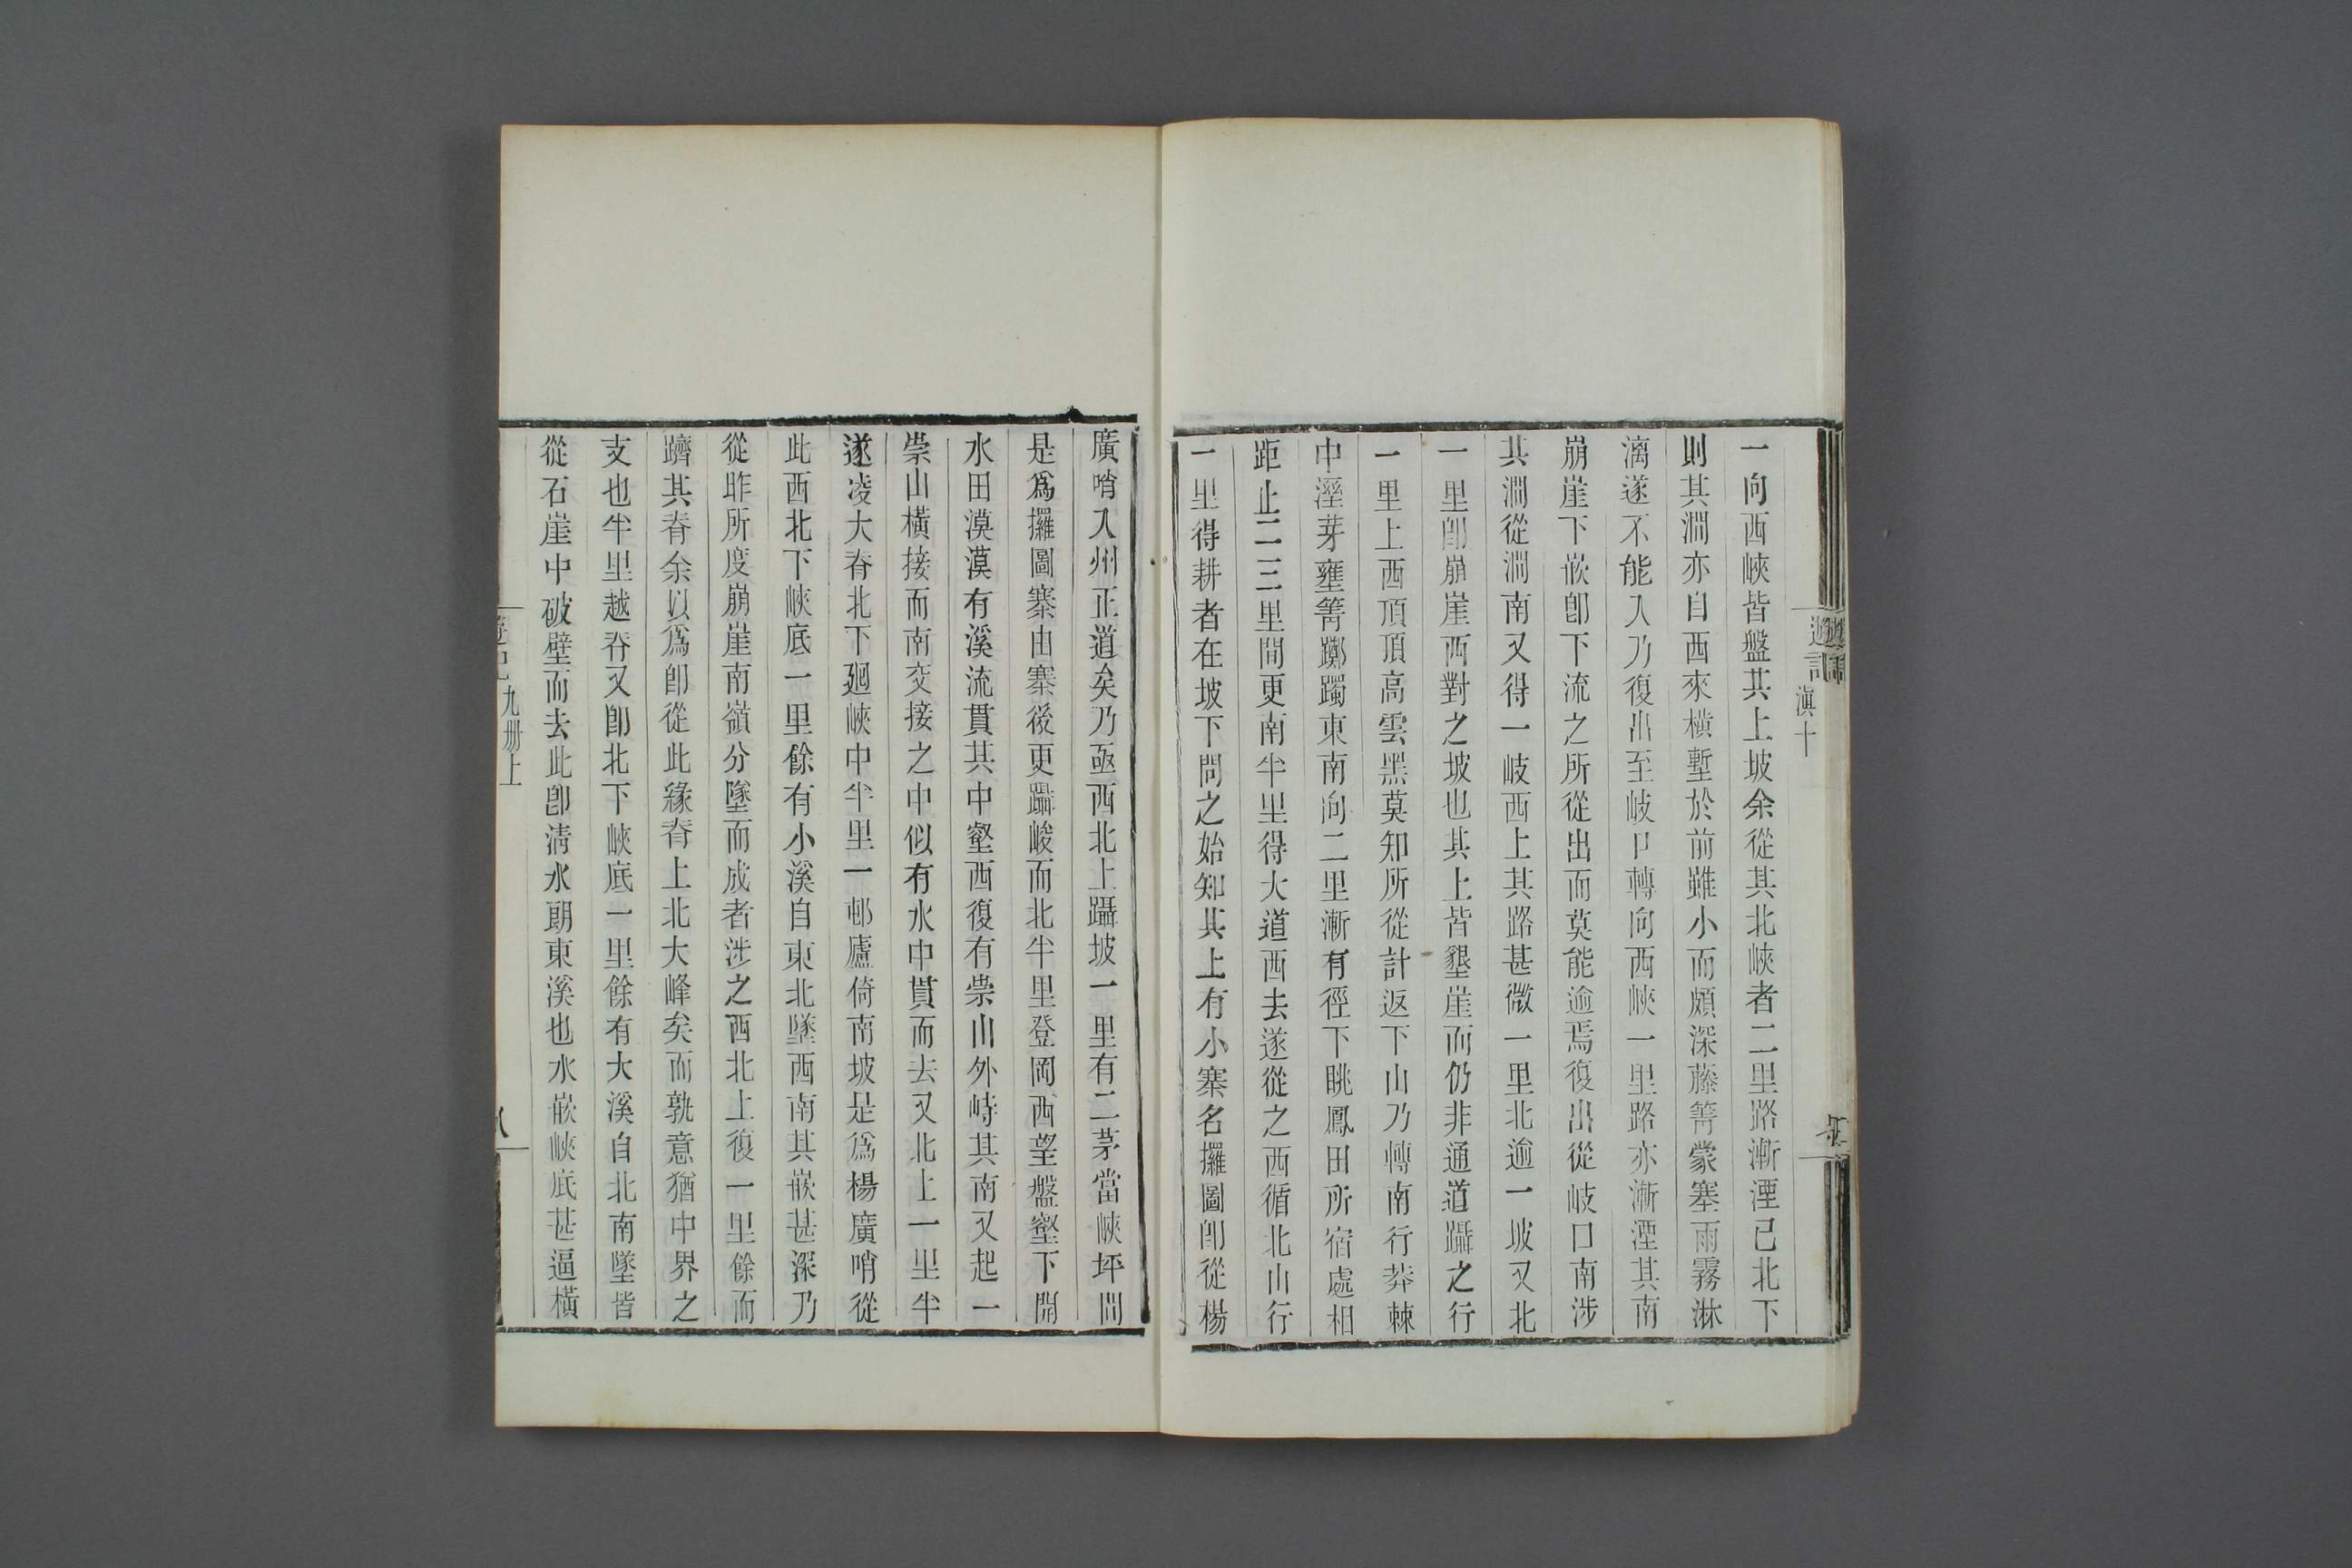 遊記 滇十
一向西峽皆盤其上坡余從其北峽者二里路漸湮已北下
則其澗亦自西來橫塹於前雖小而頗深藤箐蒙塞雨霧淋
漓遂不能入乃復出至岐口轉向西峽一里路亦漸湮其南
崩崖下嵌卽下流之所從出而莫能逾焉復出從岐口南涉
其澗從澗南又得一岐西上其路甚微一里北逾一坡又北
一里卽崩崖西對之坡也其上皆墾崖而仍非通道躡之行
一里上西頂頂高雲黑莫知所從計返下山乃轉南行莽棘
中溼茅壅箐躑躅東南向二里漸有徑下眺鳳田所宿處相
距止二三里間更南半里得大道西去遂從之西循北山行
一里得耕者在坡下問之始知其上有小寨名攞圖卽從楊
廣哨入州正道矣乃亟西北上躡坡一里有二茅當峽坪間
是爲攞圖寨由寨後更躡峻而北半里登岡西望盤壑下開
水田漠漠有溪流貫其中壑西復有崇山外峙其南又起一
崇山橫接而南交接之中似有水中貫而去又北上一里半
遂凌大脊北下廻峽中半里一邨廬倚南坡是爲楊廣哨從
此西北下峽底一里餘有小溪自東北墜西南其嵌甚深乃
從昨所度崩崖南嶺分墜而成者涉之西北上復一里餘而
躋其脊余以爲卽從此緣脊上北大峰矣而孰意猶中界之
支也半里越脊又卽北下峽底一里餘有大溪自北南墜皆
從石崖中破壁而去此卽清水朗東溪也水嵌峽底甚逼橫
九册上
八